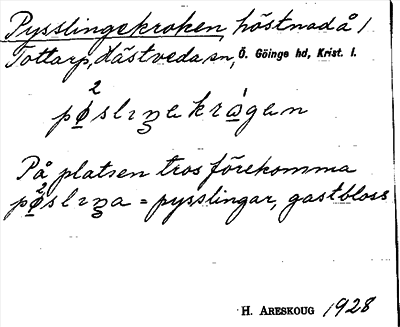 Pysslingekroken, höstnad å 1
Tottarp, Hästveda sn, Ö. Göinge hd, Krist. l.
På platsen tros förekomma
= pysslingar, gastbloss
H. ARESKOUG 1928